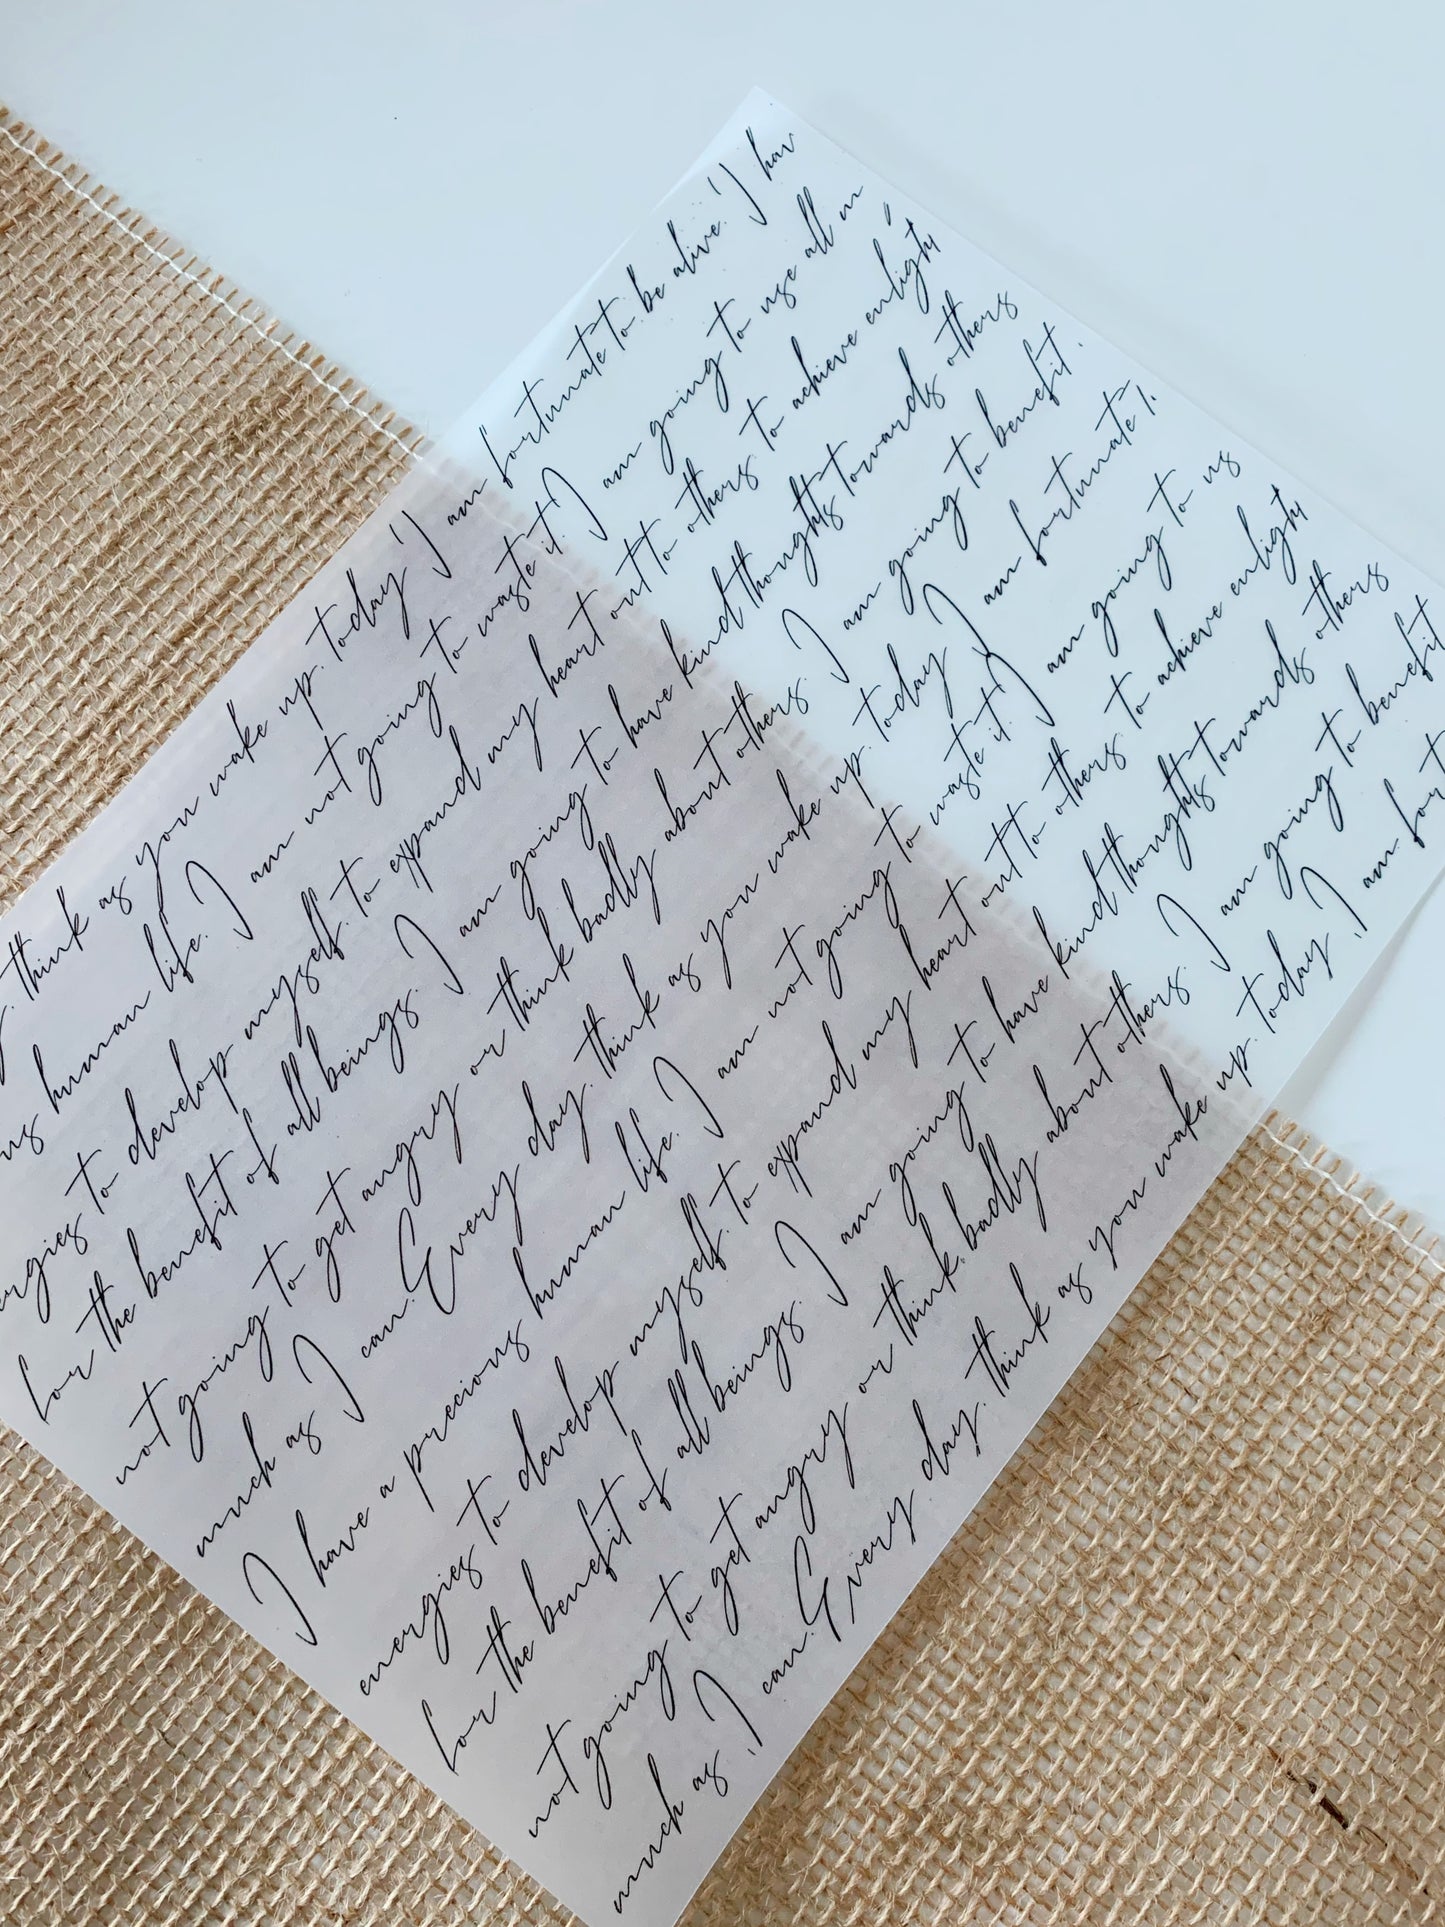 think as you wake up, today I am fortunate to be alive. I hav
human life. I am not going to waste it. I am going to use all m
to develop myself. to expand my heart out to others. to achieve enlight
for the benefit of all beings. I am going to have kind thoughts towards others
not going to get angry or think badly about others. I am going to benefit
much as I can. Every day, think as you wake up, today I am fortunate t
I have a precious human life. I am not going to waste it. I am going to us
energies to develop myself. to expand my heart out to others to achieve enlight
for the benefit of all beings. I am going to have kind thoughts towards others
not going to get angry or think badly about others. I am going to benefit
much as I can. Every day, think as you wake up, today, I am fort